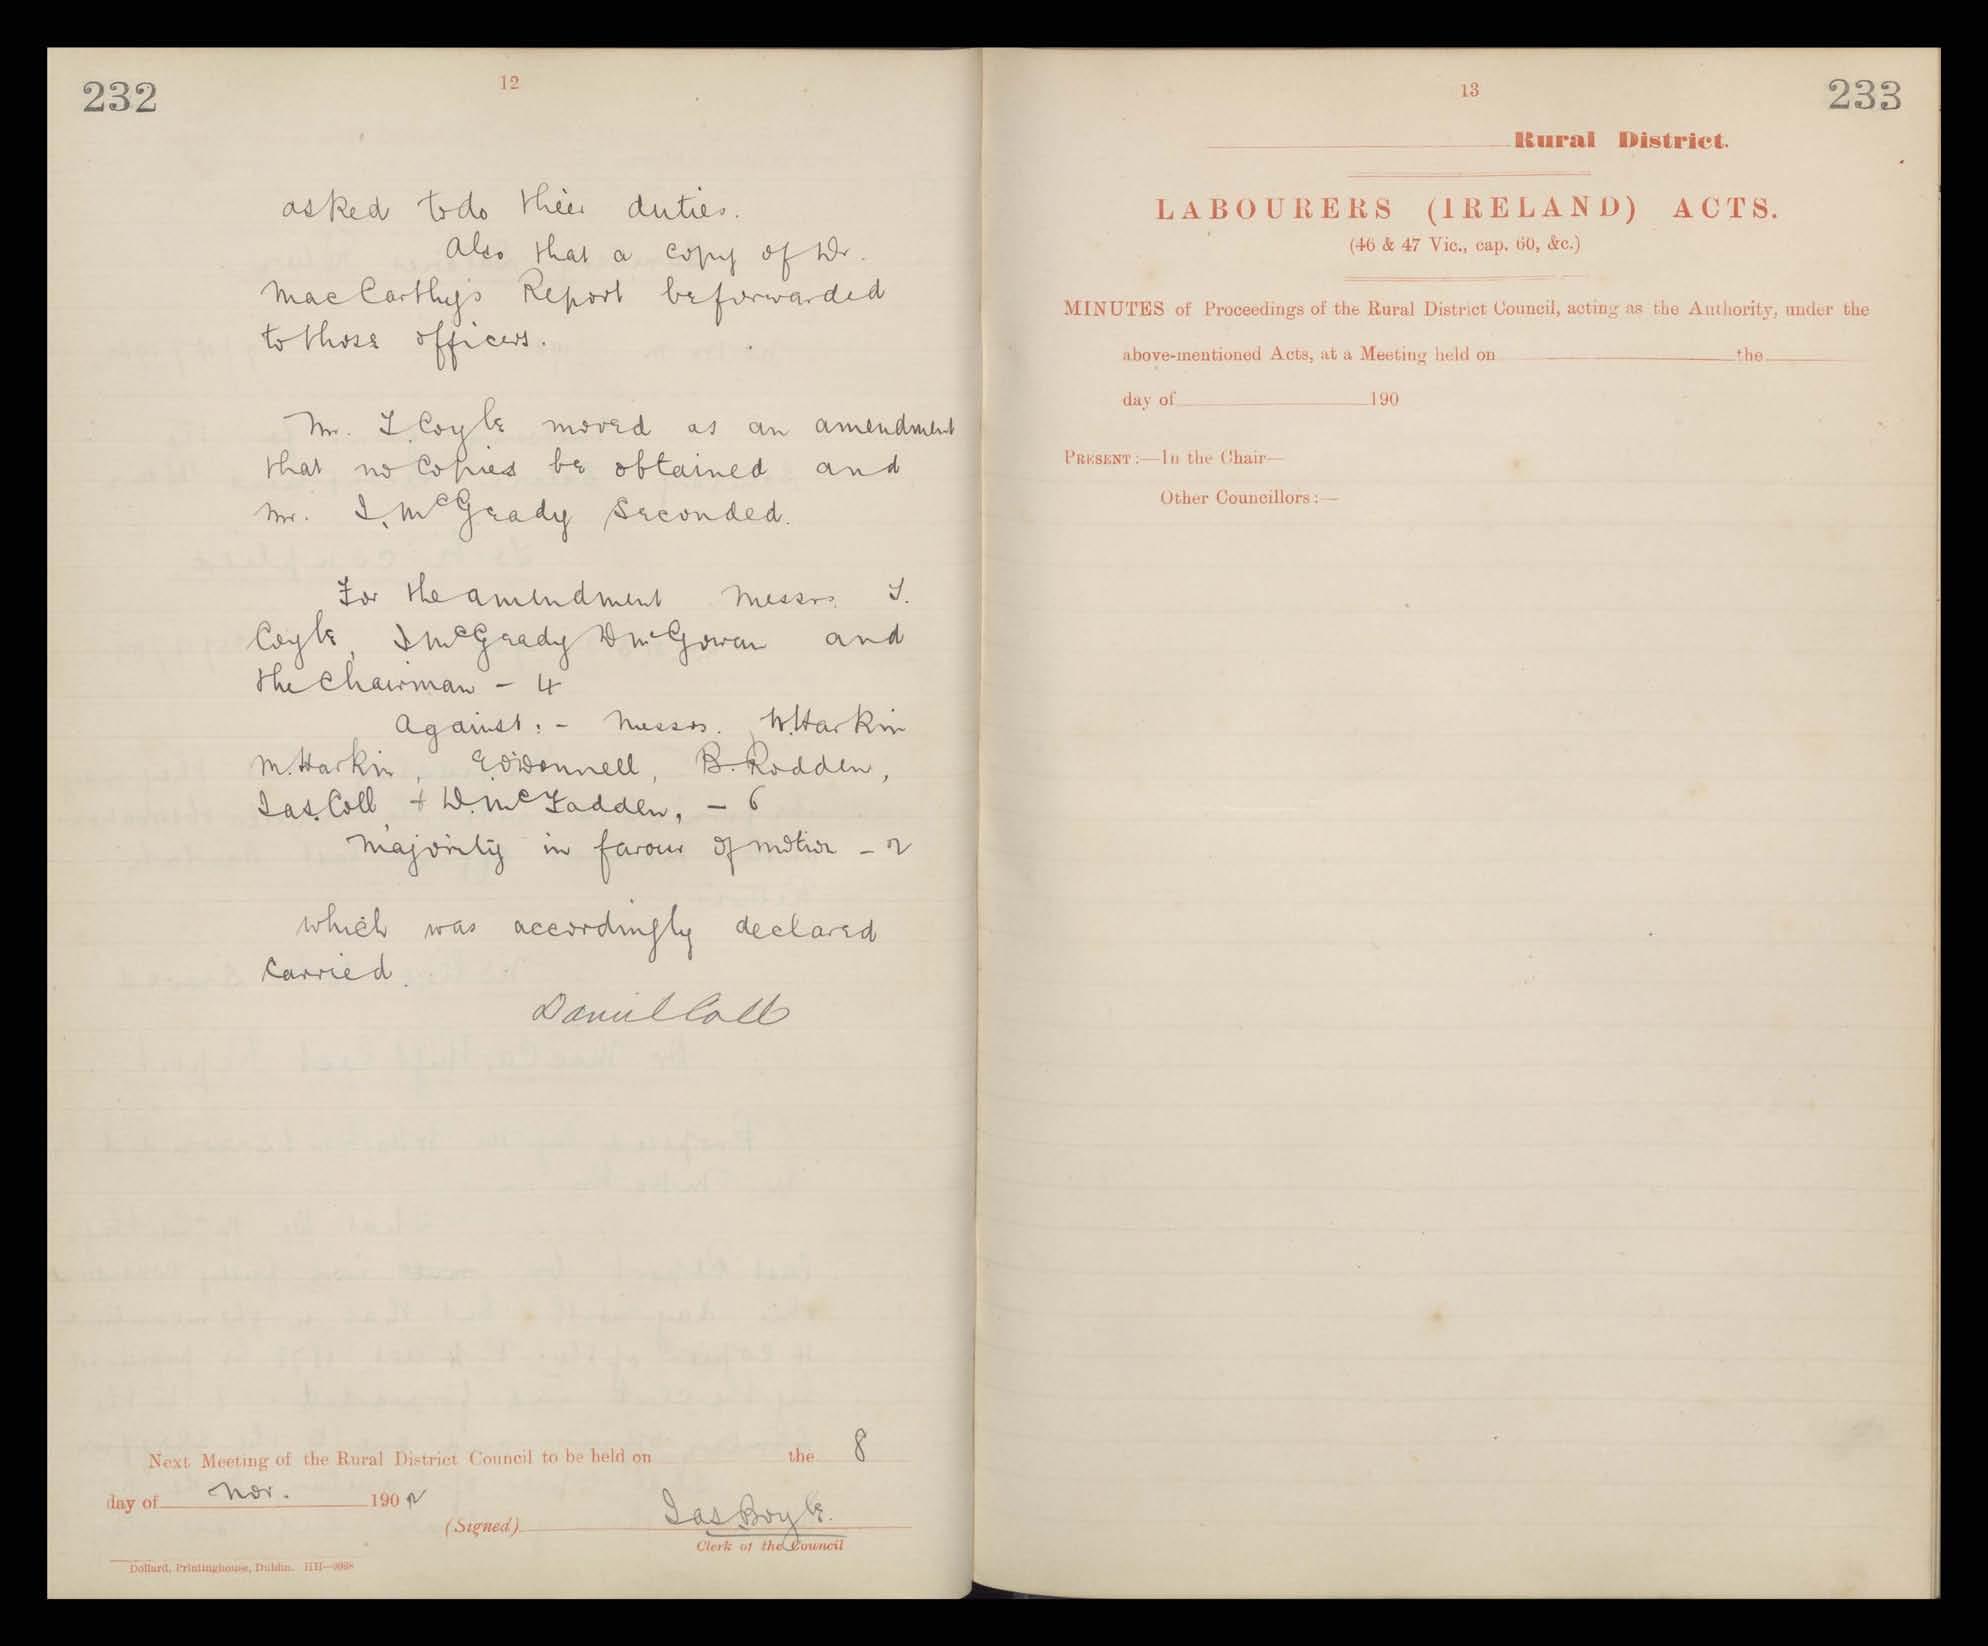 232
12
asked to do their duties.
Also that a copy of Dr.
MacCarthy's Report be forwarded
to those officers.
Mr. T. Coyle moved as an amendment
that no copies be obtained and
Mr. J. McGeady Seconded.
For the amendment Messrs. T.
Coyle, J McGeady D McGowan and
the Chairman - 4
Against: - Messrs. W. Harkin
M. Harkin, E. O'Donnell, B. Rodden,
Jas. Coll, + D. McFadden, - 6
Majority in favour of motion - 2
which was accordingly declared
carried.
Daniel Coll
Next Meeting of the Rural District Council to be held on the 8
day of Nov. 1902
(Signed) Jas Boyle.
Clerk of the Council
Dollard, Printinghouse, Dublin. HH—9068
13
233
Rural District.
LABOURERS (IRELAND) ACTS.
(46 & 47 Vic., cap. 60, &c.)
MINUTES of Proceedings of the Rural District Council, acting as the Authority, under the
above-mentioned Acts, at a Meeting held on the
day of 190
PRESENT :—In the Chair—
Other Councillors :—